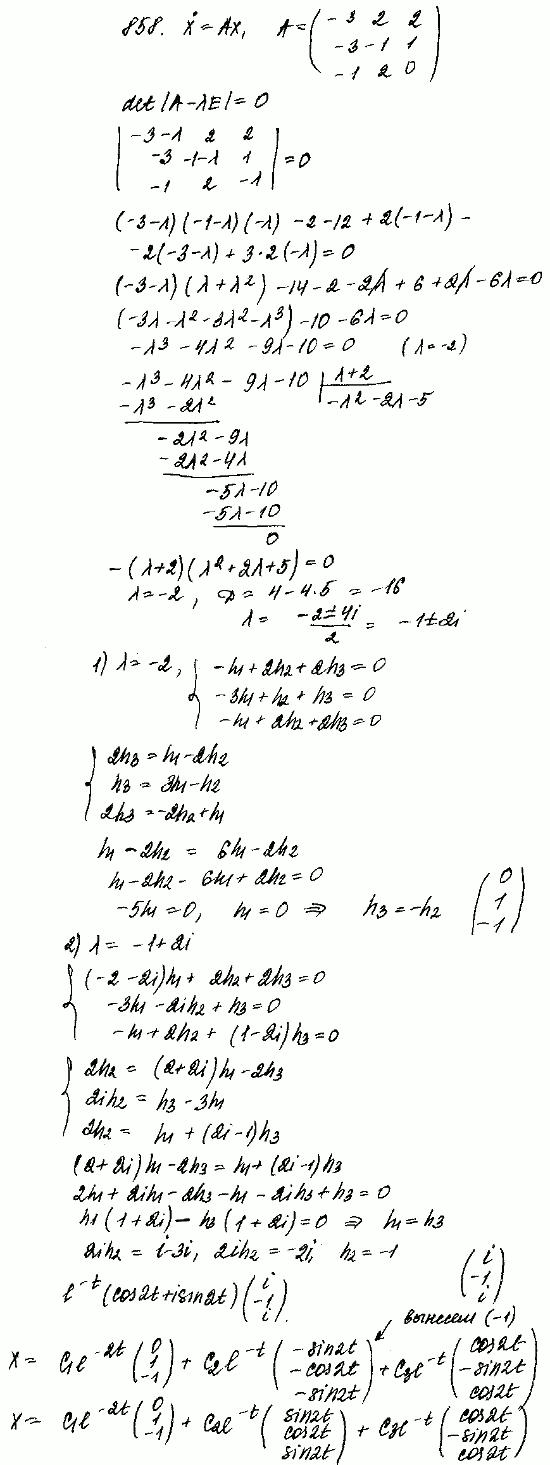 858. ẋ = Ax, A = ( -3 2 2
-3 -1 1
-1 2 0 )
det |A - λE| = 0
| -3-λ 2 2
-3 -1-λ 1
-1 2 -λ | = 0
(-3-λ)(-1-λ)(-λ) - 2 - 12 + 2(-1-λ) -
- 2(-3-λ) + 3·2(-λ) = 0
(-3-λ)(λ+λ²) - 14 - 2 - 2λ + 6 + 2λ - 6λ = 0
(-3λ - λ² - 3λ² - λ³) - 10 - 6λ = 0
-λ³ - 4λ² - 9λ - 10 = 0 (λ = -2)
-λ³ - 4λ² - 9λ - 10 | λ+2
-λ³ - 2λ² -λ² - 2λ - 5
-2λ² - 9λ
-2λ² - 4λ
-5λ - 10
-5λ - 10
0
-(λ+2)(λ²+2λ+5) = 0
λ = -2, D = 4 - 4·5 = -16
λ = (-2±4i)/2 = -1±2i
1) λ = -2, { -h₁ + 2h₂ + 2h₃ = 0
-3h₁ + h₂ + h₃ = 0
-h₁ + 2h₂ + 2h₃ = 0
{ 2h₃ = h₁ - 2h₂
h₃ = 3h₁ - h₂
2h₃ = -2h₂ + h₁
h₁ - 2h₂ = 6h₁ - 2h₂
h₁ - 2h₂ - 6h₁ + 2h₂ = 0
-5h₁ = 0, h₁ = 0 ⇒ h₃ = -h₂ ( 0 1 -1 )
2) λ = -1+2i
{ (-2-2i)h₁ + 2h₂ + 2h₃ = 0
-3h₁ - 2ih₂ + h₃ = 0
-h₁ + 2h₂ + (1-2i)h₃ = 0
{ 2h₂ = (2+2i)h₁ - 2h₃
2ih₂ = h₃ - 3h₁
2h₂ = h₁ + (2i-1)h₃
(2+2i)h₁ - 2h₃ = h₁ + (2i-1)h₃
2h₁ + 2ih₁ - 2h₃ - h₁ - 2ih₃ + h₃ = 0
h₁(1+2i) - h₃(1+2i) = 0 ⇒ h₁ = h₃
2ih₂ = i - 3i, 2ih₂ = -2i, h₂ = -1 ( i -1 i )
e^(-t) (cos2t + isin2t) ( i -1 i ).
вынесем (-1)
x = C₁e^(-2t) ( 0 1 -1 ) + C₂e^(-t) ( -sin2t -cos2t -sin2t ) + C₃e^(-t) ( cos2t -sin2t cos2t )
x = C₁e^(-2t) ( 0 1 -1 ) + C₂e^(-t) ( sin2t cos2t sin2t ) + C₃e^(-t) ( cos2t -sin2t cos2t )